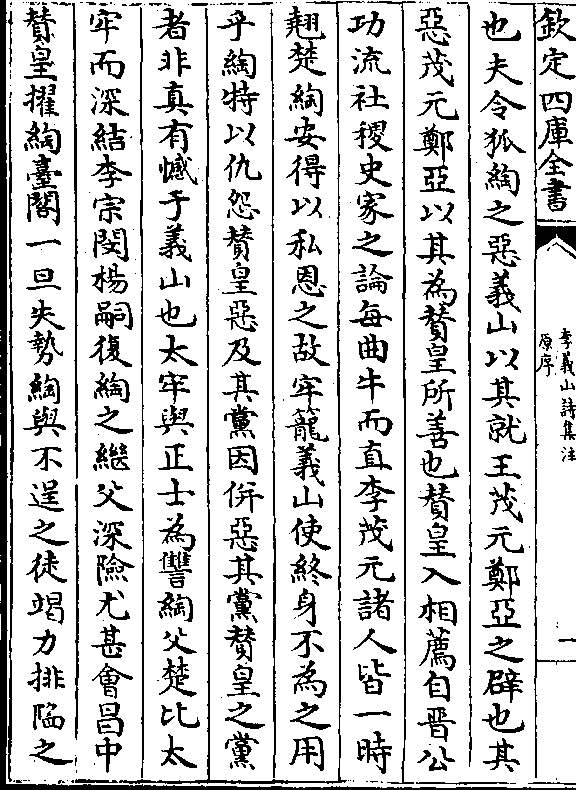 欽定四庫全書
李義山詩集注
原序
一
也夫令狐綯之惡義山以其就王茂元鄭亞之辟也其
惡茂元鄭亞以其為贊皇所善也贊皇入相薦自晋公
功流社稷史家之論每曲牛而直李茂元諸人皆一時
翹楚綯安得以私恩之故牢籠義山使終身不為之用
乎綯特以仇怨贊皇惡及其黨因併惡其黨贊皇之黨
者非真有憾于義山也太牢與正士為讐綯父楚比太
牢而深結李宗閔楊嗣復綯之繼父深險尤甚會昌中
贊皇擢綯臺閣一旦失勢綯與不逞之徒竭力排陥之